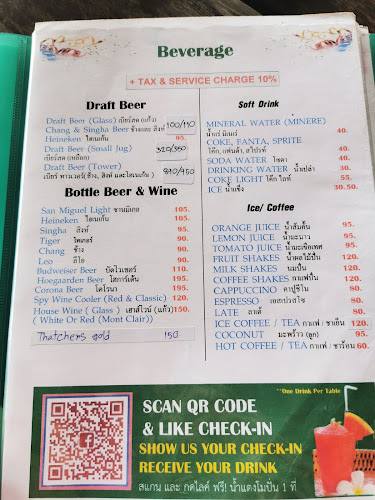 Beverage
+ TAX & SERVICE CHARGE 10%
Draft Beer
Draft Beer (Glass) เบียร์สด (แก้ว)
Chang & Singha Beer ช้างและ สิงห์ 100/140
Heineken ไฮเนเก้น 95.
Draft Beer (Small Jug) 320/350
เบียร์สด (เหยือก)
Draft Beer (Tower)
เบียร์ ทาวเวอร์(ช้าง, สิงห์ และไฮเนเก้น )
Bottle Beer & Wine
San Miguel Light ซานมิเกล 105.
Heineken ไฮเนเก้น 105.
Singha สิงห์ 95.
Tiger ไทเกอร์ 90.
Chang ช้าง 90.
Leo ลีโอ 90.
Budweiser Beer บัดไวเซอร์ 110.
Hoegaarden Beer โฮการ์เด้น 195.
Corona Beer โคโรน่า 195.
Spy Wine Cooler (Red & Classic) 120.
House Wine ( Glass ) เฮาส์ไวน์ (แก้ว) 150.
( White Or Red (Mont Clair))
Thatchers gold 150
Soft Drink
MINERAL WATER (MINERE)
น้ำแร่ มิเนเร่ 40.
COKE, FANTA, SPRITE
โค๊ก, แฟนต้า, สไปรท์ 40.
SODA WATER โซดา 40.
DRINKING WATER น้ำเปล่า 30.
COKE LIGHT โค๊ก ไลท์ 55.
ICE น้ำแข็ง 30. 50.
Ice/ Coffee
ORANGE JUICE น้ำส้มคั้น 95.
LEMON JUICE น้ำมะนาว 95.
TOMATO JUICE น้ำมะเขือเทศ 95.
FRUIT SHAKES น้ำผลไม้ปั่น 120.
MILK SHAKES นมปั่น 120.
COFFEE SHAKES กาแฟปั่น 120.
CAPPUCCINO คาปูชิโน 90.
ESPRESSO เอสเปรสโซ่ 90.
LATE ลาเต้ 90.
ICE COFFEE / TEA กาแฟ / ชาเย็น 120.
COCONUT มะพร้าว (ลูก) 90.
HOT COFFEE / TEA กาแฟ / ชาร้อน 60.
**One Drink Per Table
SCAN QR CODE
& LIKE CHECK-IN
SHOW US YOUR CHECK-IN
RECEIVE YOUR DRINK
สแกน และ กดไลค์ ฟรี! น้ำแตงโมปั่น 1 ที่